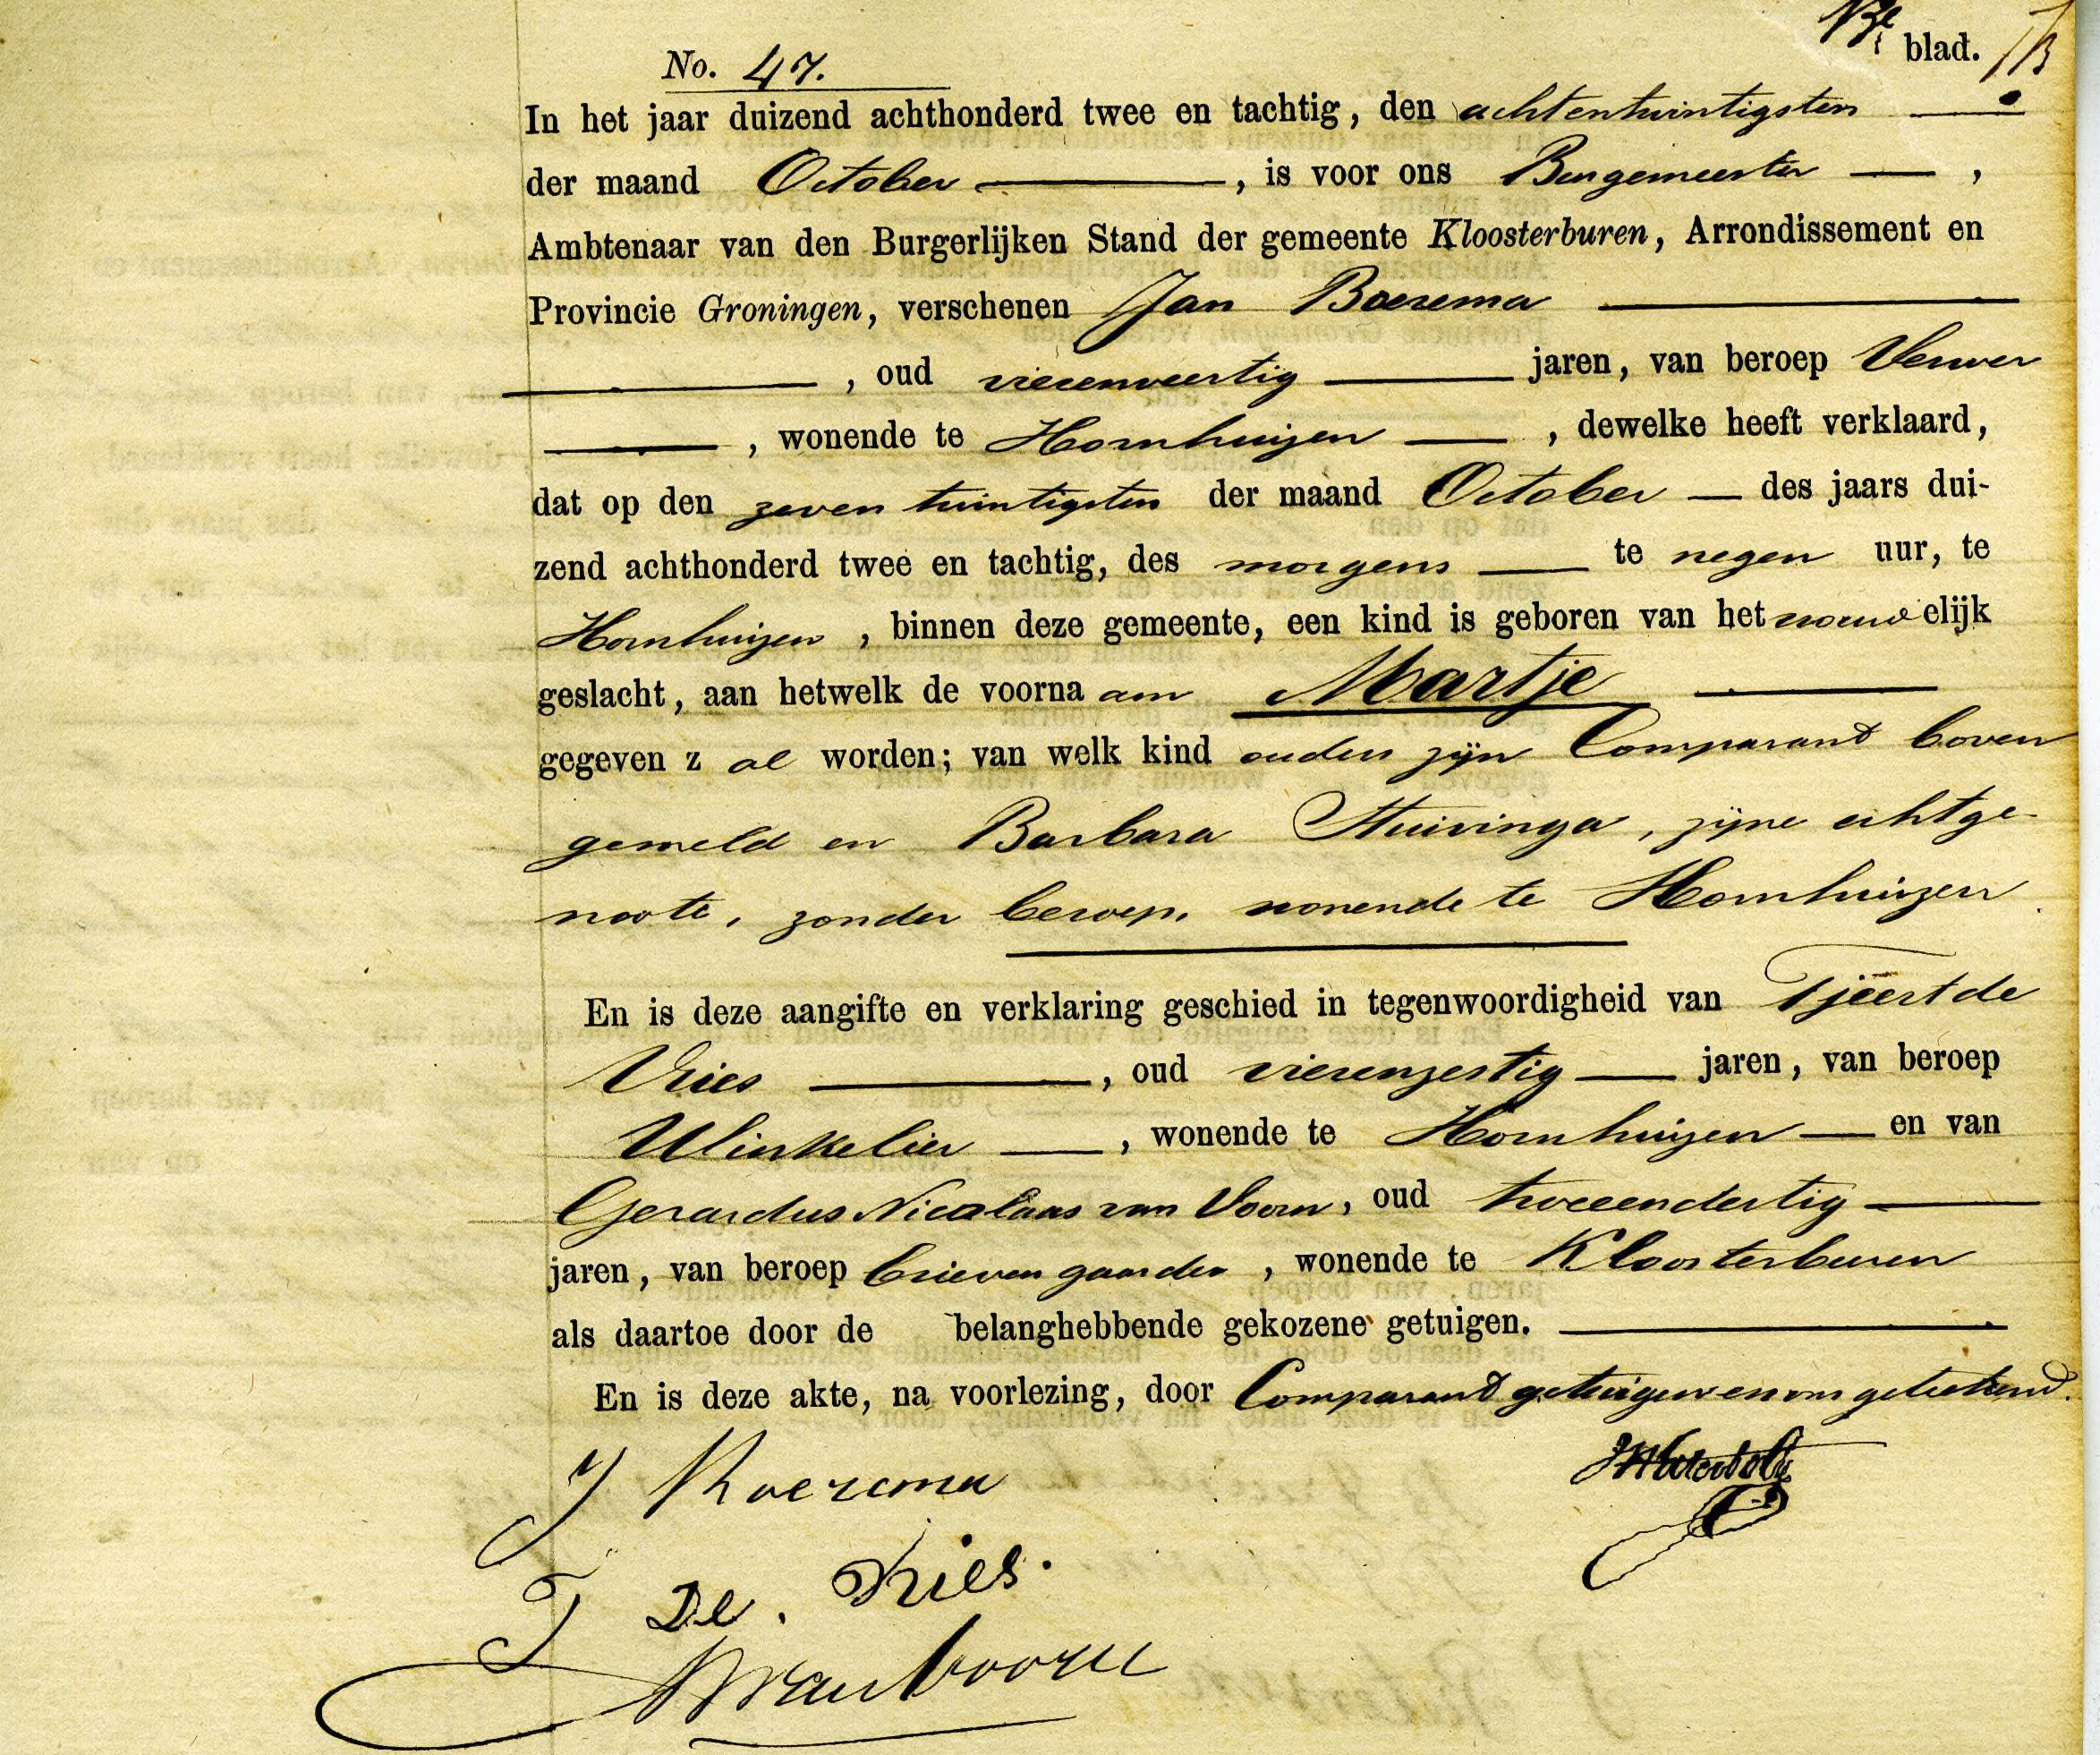 blad.
No. 47.
In het jaar duizend achthonderd twee en tachtig, den achtentwintigsten
der maand October, is voor ons Burgemeester,
Ambtenaar van den Burgerlijken Stand der gemeente Kloosterburen, Arrondissement en
Provincie Groningen, verschenen Jan Boerema
, oud vierenveertig jaren, van beroep Verwer
, wonende te Hornhuizen, dewelke heeft verklaard,
dat op den zeven twintigsten der maand October des jaars dui-
zend achthonderd twee en tachtig, des morgens te negen uur, te
Hornhuizen, binnen deze gemeente, een kind is geboren van het vrouwelijk
geslacht, aan hetwelk de voornaam Martje
gegeven zal worden; van welk kind ouders zijn Comparant boven
gemeld en Barbara Stuivinga, zijne echtge-
noote, zonder beroep, wonende te Hornhuizen
En is deze aangifte en verklaring geschied in tegenwoordigheid van Tjeert de
Vries, oud vierenzestig jaren, van beroep
Winkelier, wonende te Hornhuizen en van
Gerardus Nicolaas van Voorn, oud tweeendertig
jaren, van beroep brievengaarder, wonende te Kloosterburen
als daartoe door de belanghebbende gekozene getuigen.
En is deze akte, na voorlezing, door Comparant getuigen en ons geteekend.
J Boerema
T De. Vries.
van Voorn